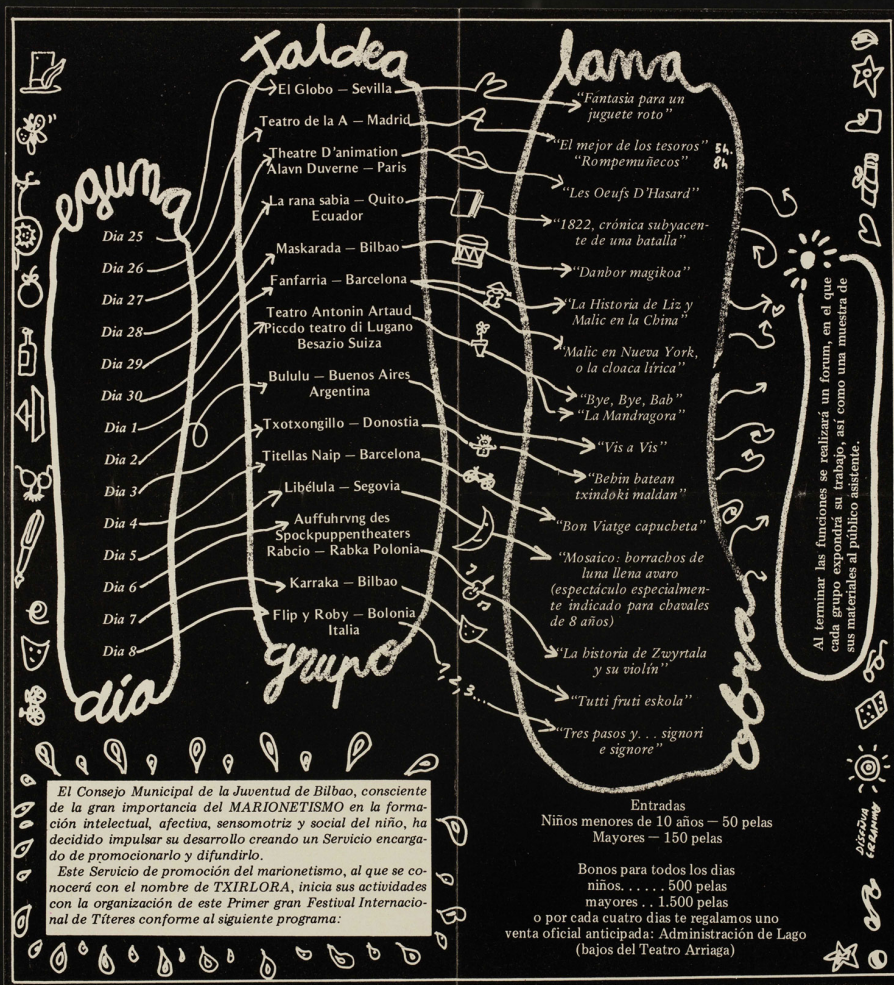 eguna
Dia 25
Dia 26
Dia 27
Dia 28
Dia 29
Dia 30
Dia 1
Dia 2
Dia 3
Dia 4
Dia 5
Dia 6
Dia 7
Dia 8
día
taldea
El Globo — Sevilla
Teatro de la A — Madrid
Theatre D'animation
Alavn Duverne — Paris
La rana sabia — Quito
Ecuador
Maskarada — Bilbao
Fanfarria — Barcelona
Teatro Antonin Artaud
Piccdo teatro di Lugano
Besazio Suiza
Bululu — Buenos Aires
Argentina
Txotxongillo — Donostia
Titellas Naip — Barcelona
Libélula — Segovia
Auffuhrvng des
Spockpuppentheaters
Rabcio — Rabka Polonia
Karraka — Bilbao
Flip y Roby — Bolonia
Italia
grupo
1, 2, 3...
lana
“Fantasia para un
juguete roto”
“El mejor de los tesoros” 5h.
“Rompemuñecos” 8h
“Les Oeufs D'Hasard”
“1822, crónica subyacen-
te de una batalla”
“Danbor magikoa”
“La Historia de Liz y
Malic en la China”
“Malic en Nueva York,
o la cloaca lírica”
“Bye, Bye, Bab”
“La Mandragora”
“Vis a Vis”
“Behin batean
txindoki maldan”
“Bon Viatge capucheta”
“Mosaico: borrachos de
luna llena avaro
(espectáculo especialmen-
te indicado para chavales
de 8 años)
“La historia de Zwyrtala
y su violín”
“Tutti fruti eskola”
“Tres pasos y. . . signori
e signore”
obra
Al terminar las funciones se realizará un forum, en el que
cada grupo expondrá su trabajo, así como una muestra de
sus materiales al público asistente.
El Consejo Municipal de la Juventud de Bilbao, consciente
de la gran importancia del MARIONETISMO en la forma-
ción intelectual, afectiva, sensomotriz y social del niño, ha
decidido impulsar su desarrollo creando un Servicio encarga-
do de promocionarlo y difundirlo.
Este Servicio de promoción del marionetismo, al que se co-
nocerá con el nombre de TXIRLORA, inicia sus actividades
con la organización de este Primer gran Festival Internacio-
nal de Títeres conforme al siguiente programa:
Entradas
Niños menores de 10 años — 50 pelas
Mayores — 150 pelas
Bonos para todos los dias
niños. . . . . . 500 pelas
mayores . . 1.500 pelas
o por cada cuatro dias te regalamos uno
venta oficial anticipada: Administración de Lago
(bajos del Teatro Arriaga)